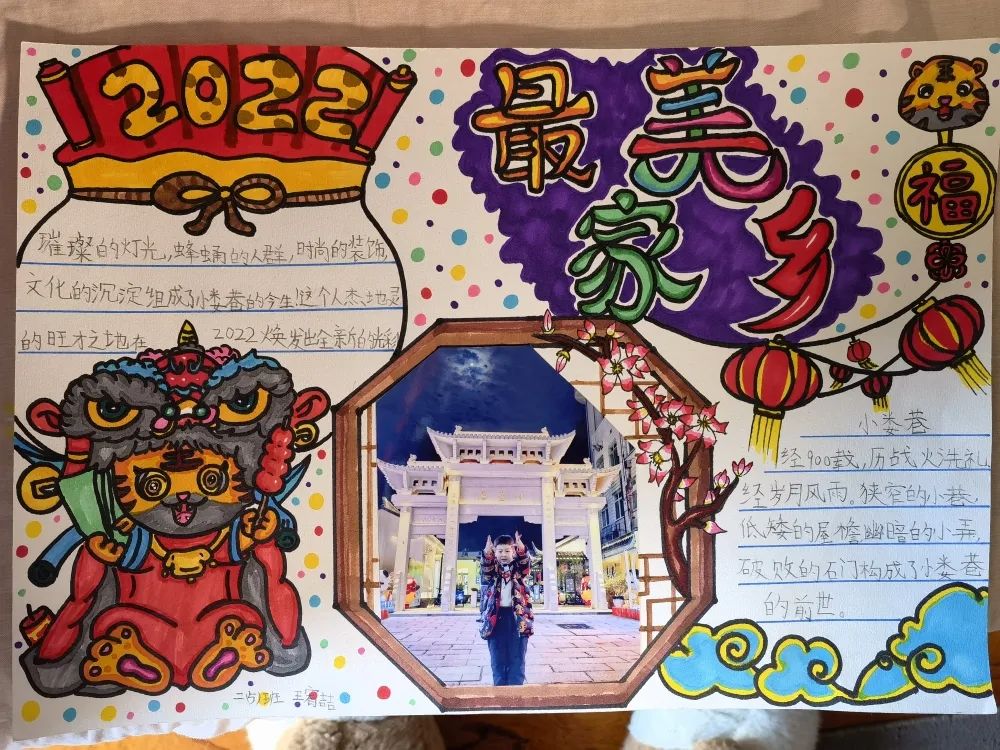 2022
最美家乡
福
璀璨的灯光,蜂蛹的人群,时尚的装饰,
文化的沉淀组成了小娄巷的今生!这个人杰地灵
的旺才之地在 2022焕发出全新的光彩
小娄巷
经900载,历战火洗礼
经岁月风雨。狭窄的小巷,
低矮的屋檐幽暗的小弄,
破败的石门构成了小娄巷
的前世。